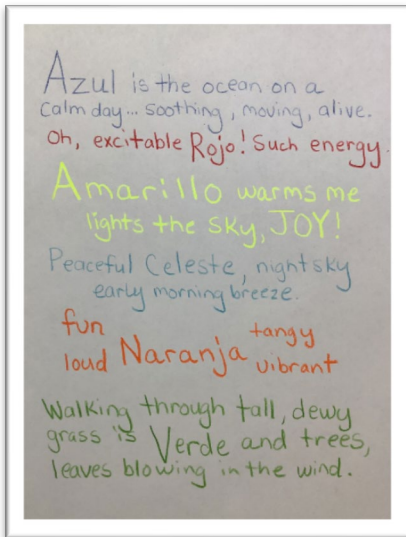 Azul is the ocean on a
calm day... soothing, moving, alive.
Oh, excitable Rojo! Such energy.
Amarillo warms me
lights the sky, JOY!
Peaceful Celeste, night sky
early morning breeze.
fun tangy
loud Naranja vibrant
Walking through tall, dewy
grass is Verde and trees,
leaves blowing in the wind.